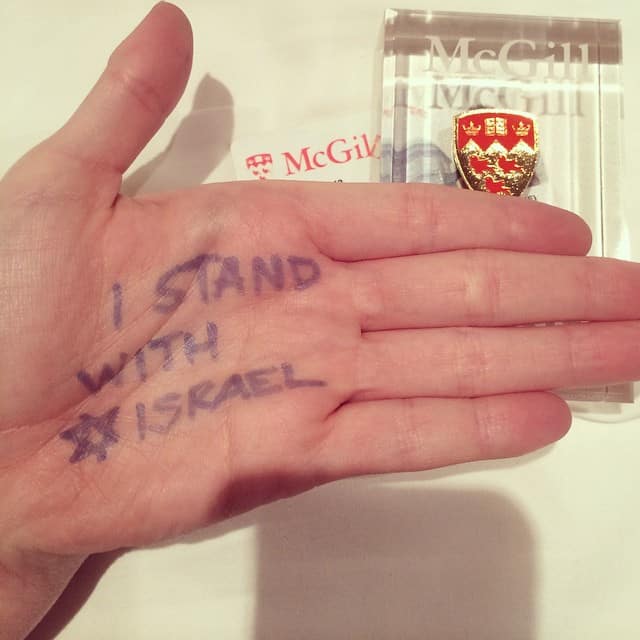 McGill
McGill
McGill
I STAND
WITH
ISRAEL